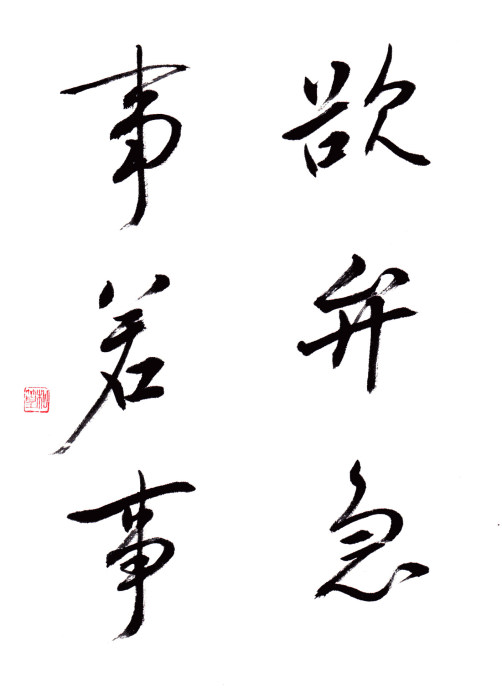 欲弁急
事若事